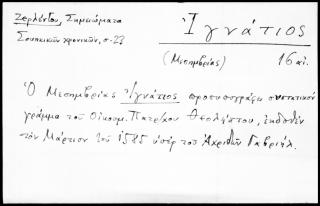 Ζερλέντου, Σημειώματα
χρονικῶν, σ. 27
Ἰγνάτιος
(Μεσημβρίας) 16 αἰ.
Ὁ Μεσημβρίας Ἰγνάτιος προσυπογράφει συστατικὸν
γράμμα τοῦ Οἰκουμ. Πατρ/χου Θεολήπτου, ἐκδοθὲν
τὸν Μάρτιον τοῦ 1585 ὑπὲρ τοῦ Ἀχριδῶν Γαβριήλ.